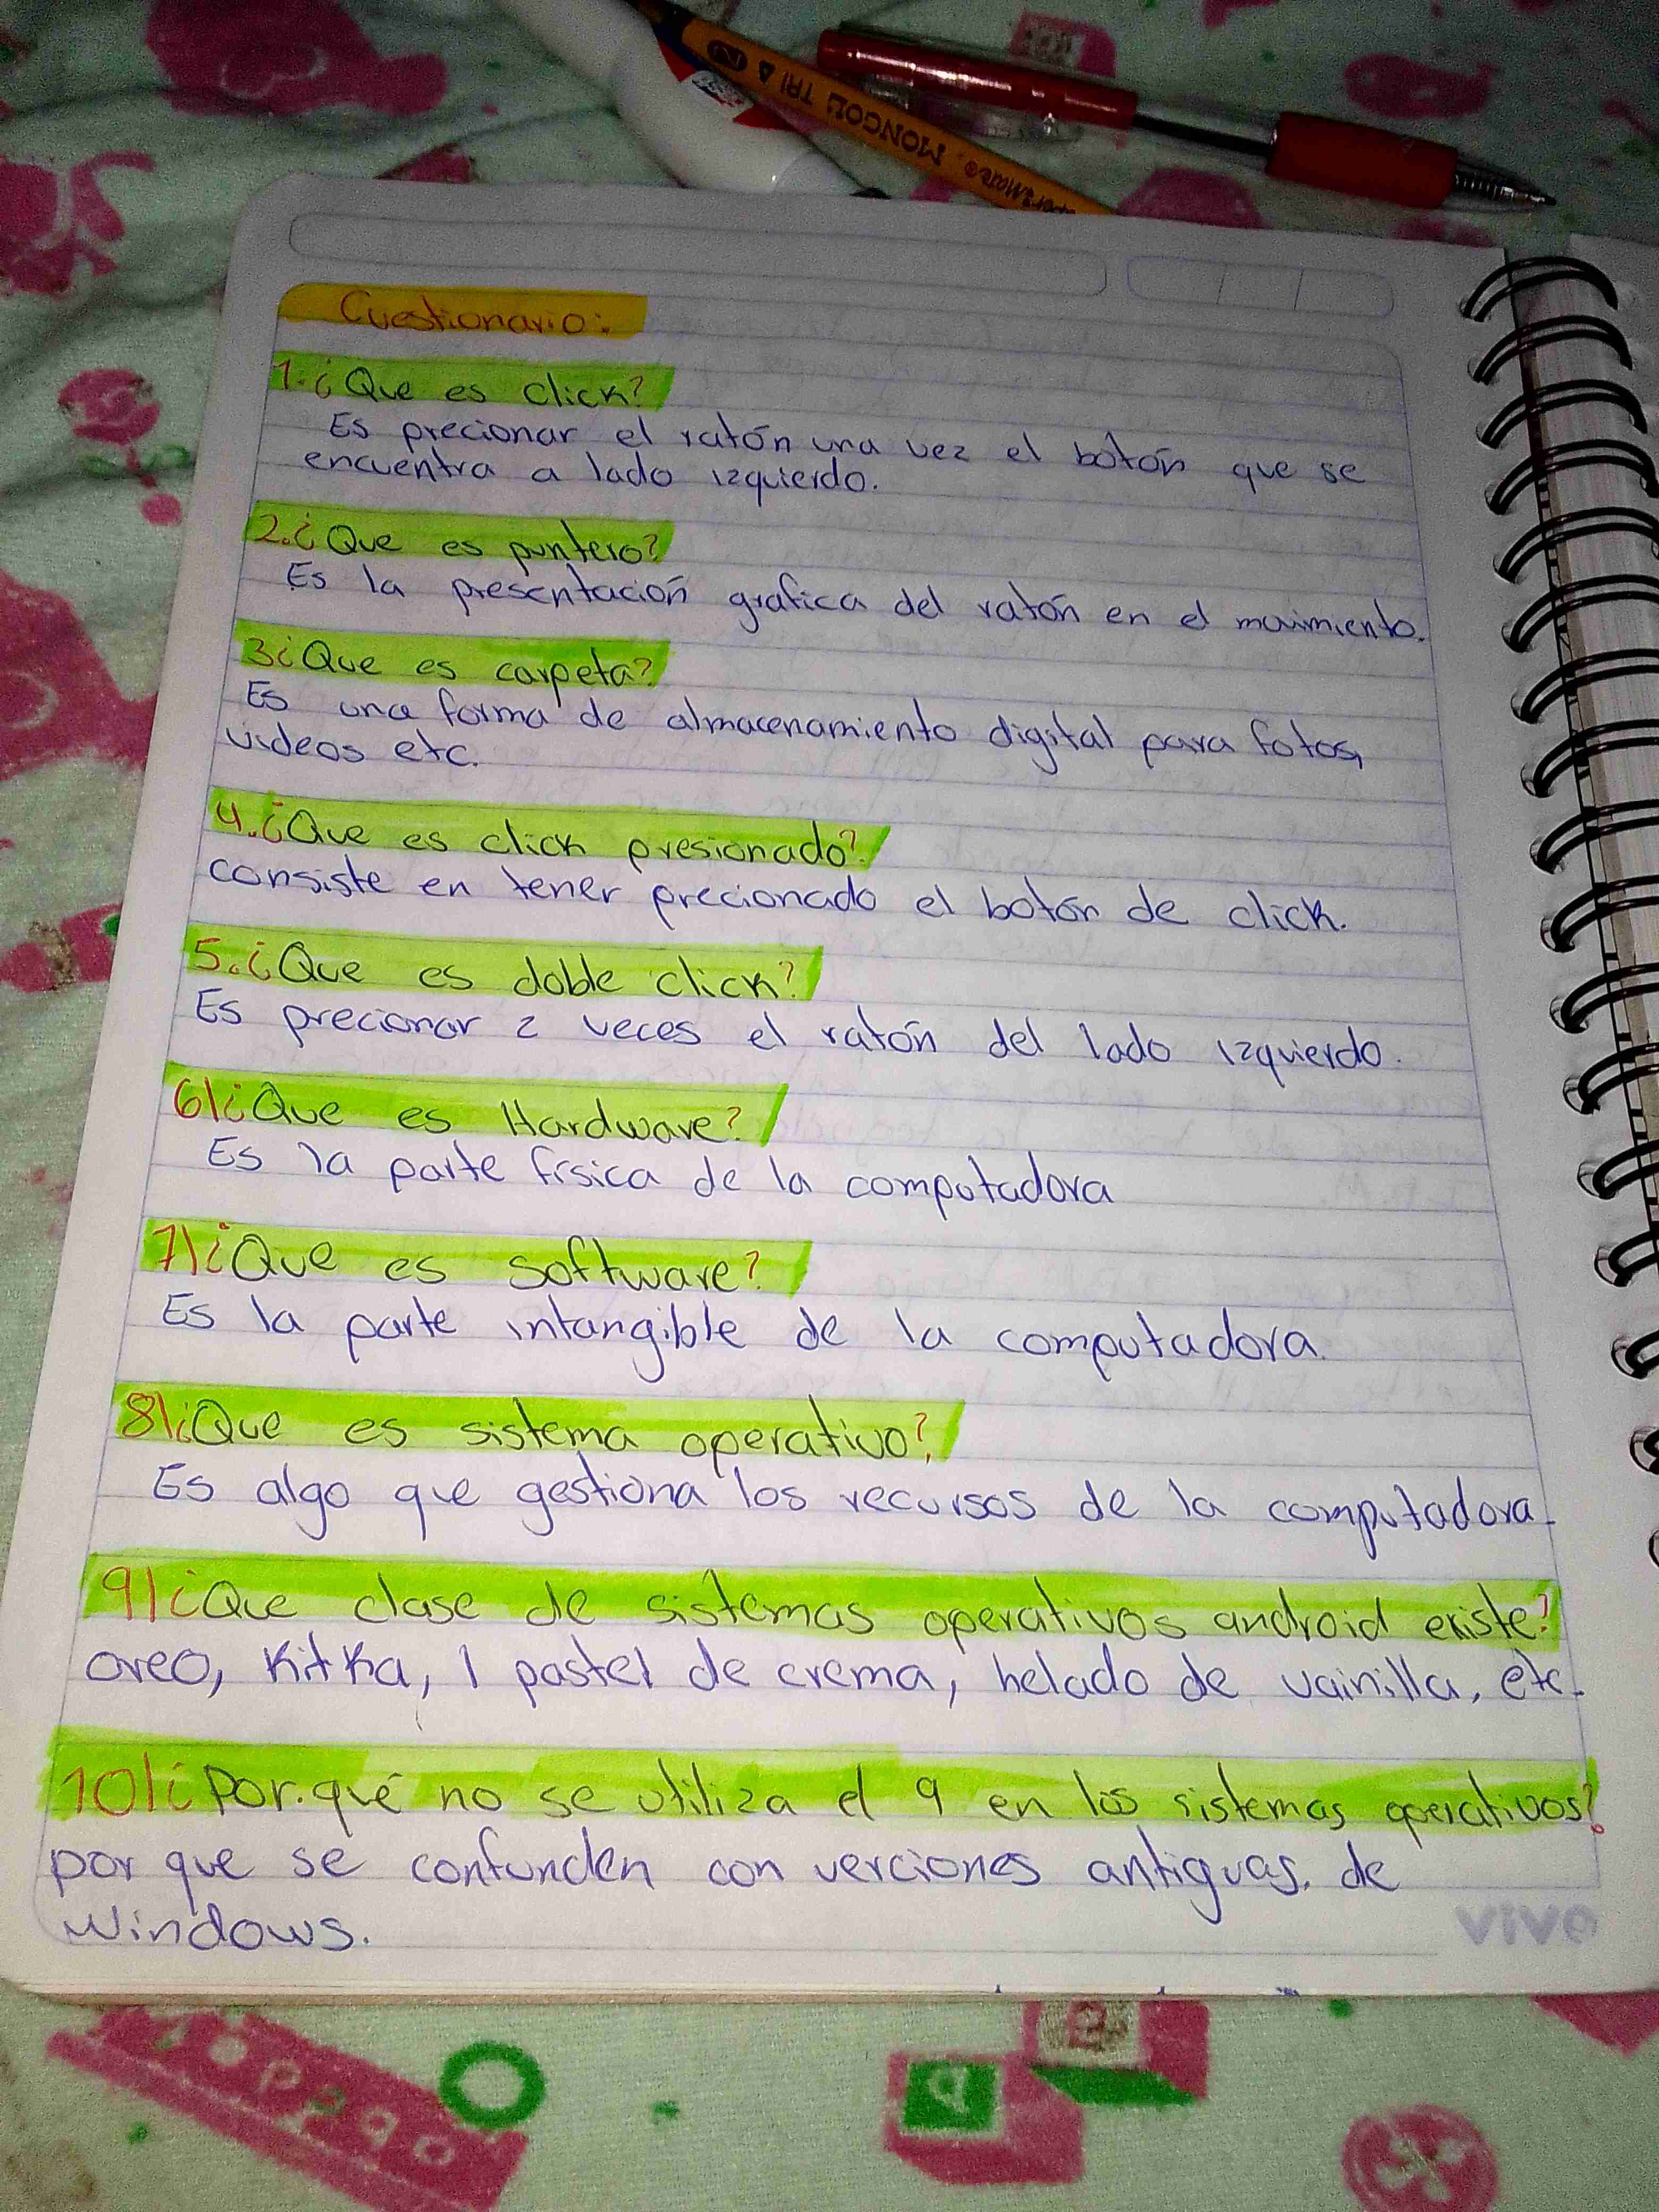 MONGOL® TRI
Cuestionario:
1.¿Que es click?
Es precionar el ratón una vez el botón que se
encuentra a lado izquierdo.
2.¿Que es puntero?
Es la presentación grafica del ratón en el movimiento.
3¿Que es carpeta?
Es una forma de almacenamiento digital para fotos,
videos etc.
4.¿Que es click presionado?
consiste en tener precionado el botón de click.
5.¿Que es doble click?
Es precionar 2 veces el ratón del lado izquierdo.
6)¿Que es Hardware?
Es la parte física de la computadora
7)¿Que es software?
Es la parte intangible de la computadora.
8)¿Que es sistema operativo?
Es algo que gestiona los recursos de la computadora.
9)¿Que clase de sistemas operativos android existe?
oreo, KitKa, 1 pastel de crema, helado de vainilla, etc.
10)¿Por.qué no se utiliza el 9 en los sistemas operativos?
por que se confunden con verciones antiguas. de
Windows.
vive